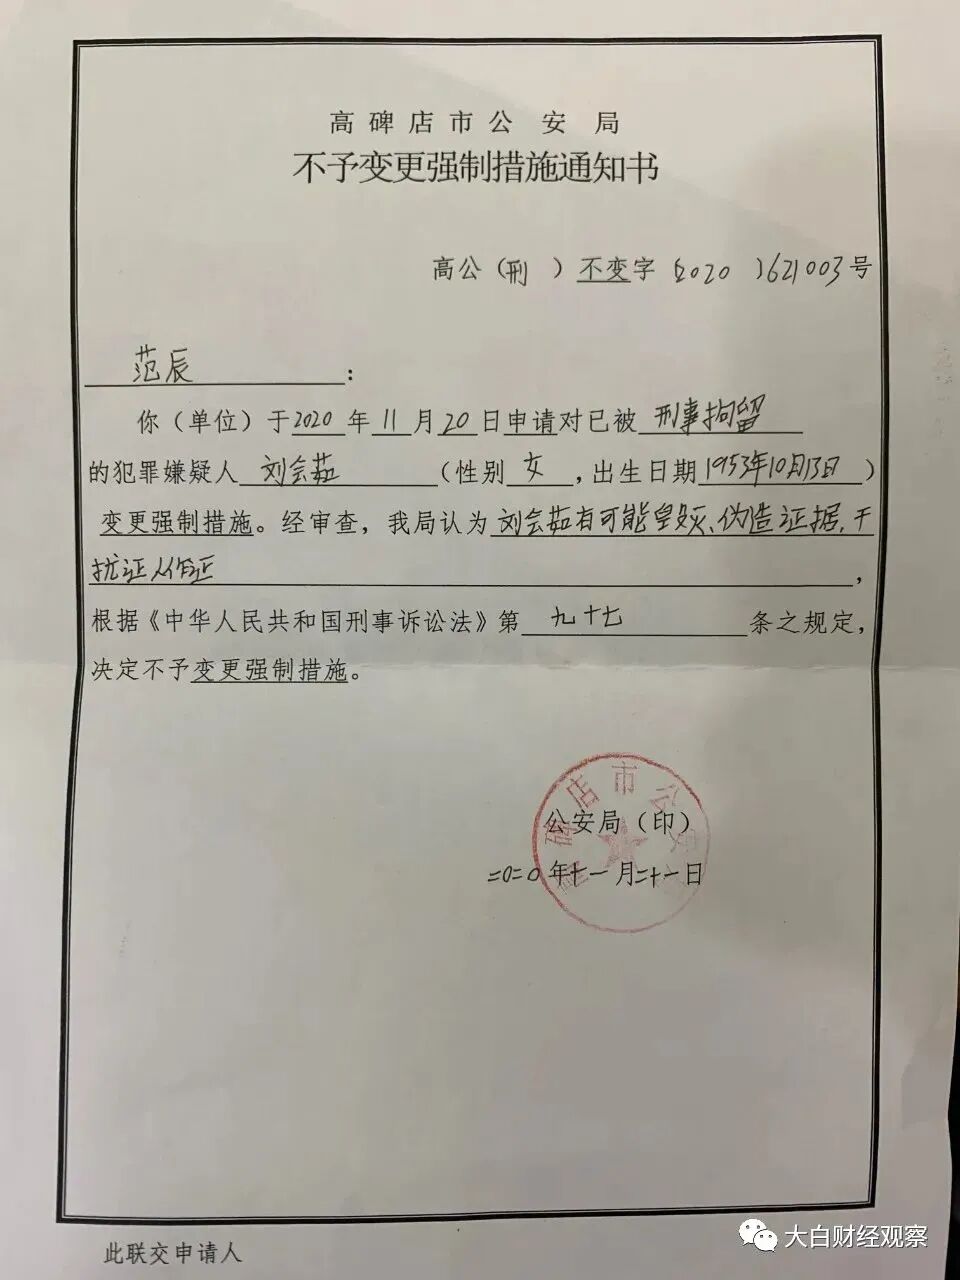 高碑店市公安局
不予变更强制措施通知书
高公（刑　）不变字〔2020　〕621003号
范辰：
你（单位）于2020年11月20日申请对已被刑事拘留
的犯罪嫌疑人刘会茹（性别女，出生日期1953年10月13日）
变更强制措施。经审查，我局认为刘会茹有可能毁灭、伪造证据，干
扰证人作证，
根据《中华人民共和国刑事诉讼法》第九十七条之规定，
决定不予变更强制措施。
高碑店市公安局
公安局（印）
二〇二〇年十一月二十一日
此联交申请人
大白财经观察